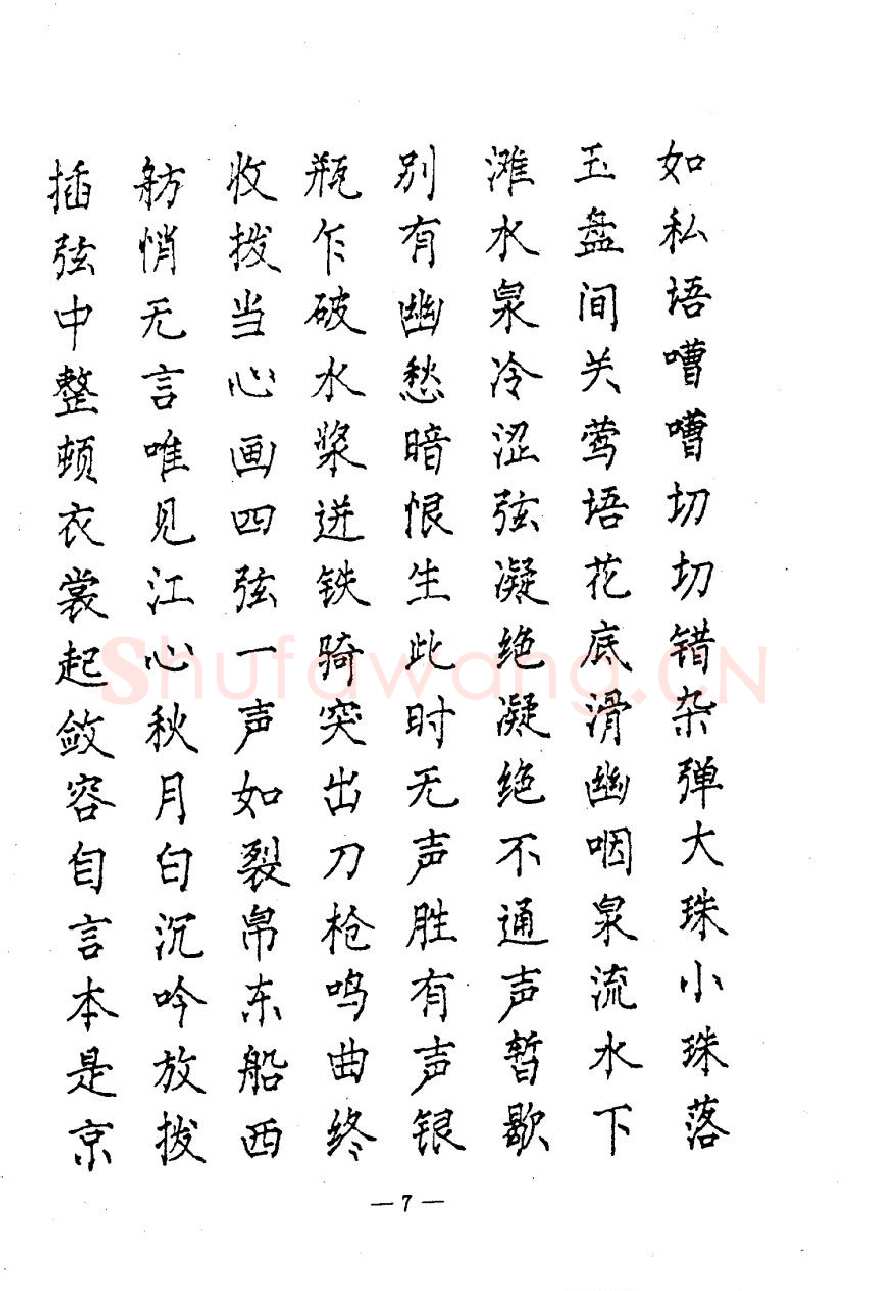 如私语嘈嘈切切错杂弹大珠小珠落
玉盘间关莺语花底滑幽咽泉流水下
滩水泉冷涩弦凝绝凝绝不通声暂歇
别有幽愁暗恨生此时无声胜有声银
瓶乍破水浆迸铁骑突出刀枪鸣曲终
收拨当心画四弦一声如裂帛东船西
舫悄无言唯见江心秋月白沉吟放拨
插弦中整顿衣裳起敛容自言本是京
—7—
Shufawang.CN